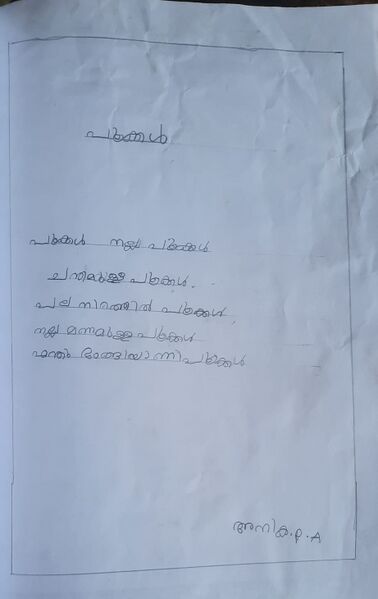 പൂക്കൾ
പൂക്കൾ നല്ല പൂക്കൾ
ചന്തമുള്ള പൂക്കൾ.
പല നിറത്തിൽ പൂക്കൾ
നല്ല മണമുള്ള പൂക്കൾ
എന്തു ഭംഗിയാന്നീ പൂക്കൾ
അനിക.P.A